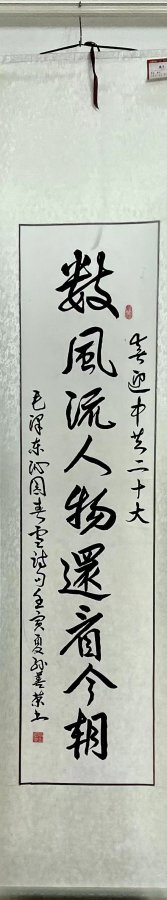 喜迎中共二十大
數風流人物還看今朝
毛泽东沁园春雪诗句壬寅夏孙善荣书